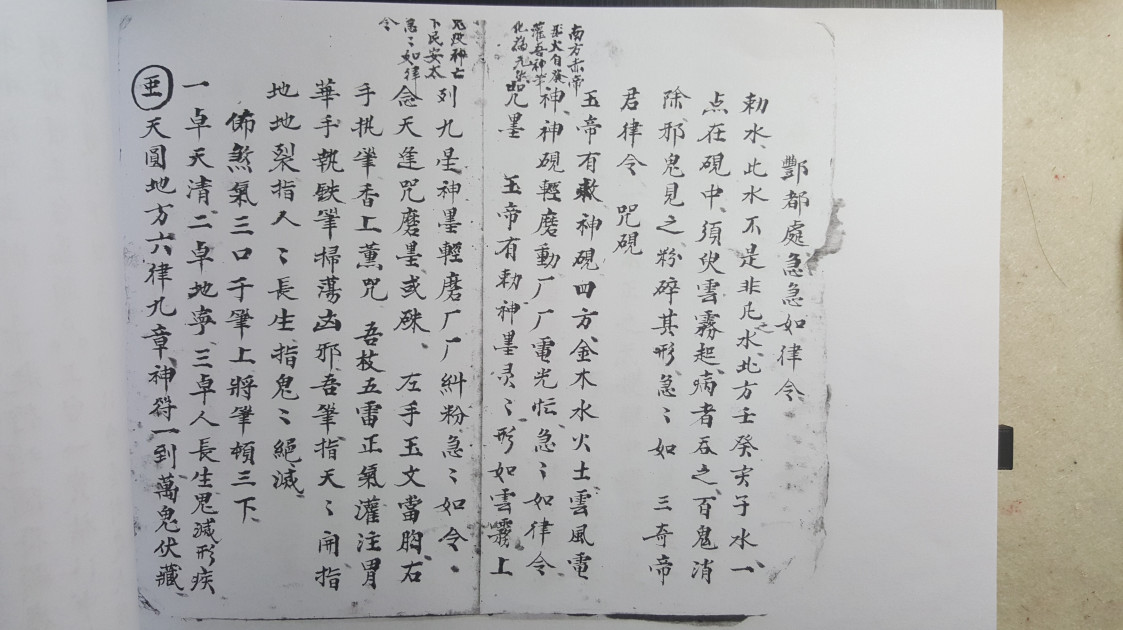 酆都處急急如律令
勅水、此水不是非凡之水、北方壬癸亥子水、一
点在硯中、須臾雲霧起、病者吞之、百鬼消
除、邪鬼見之粉碎其形急〻如 三奇帝
君律令 咒硯
玉帝有敕神硯四方、金木水火土雲風電
神、神硯輕磨動厂厂電光忙、急〻如律令、
咒墨 玉帝有勅神墨灵〻、形如雲霧上
列九星神墨輕磨厂厂糾粉急〻如令、
念天逢咒磨墨或硃、 左手玉文當胸、右
手执筆香上薰咒 吾枝五雷正氣灌注胃
華手執鉄筆掃蕩凶邪吾筆指天〻開指
地地裂指人〻長生指鬼〻絕滅
佈煞氣三口于筆上將筆頓三下、
一卓天清、二卓地寧、三卓人長生鬼滅形疾
天圓地方六律九章、神符一到萬鬼伏藏、
南方赤帝
火自發
灌吾神筆
化為
神亡
下民安太
急〻如律
令